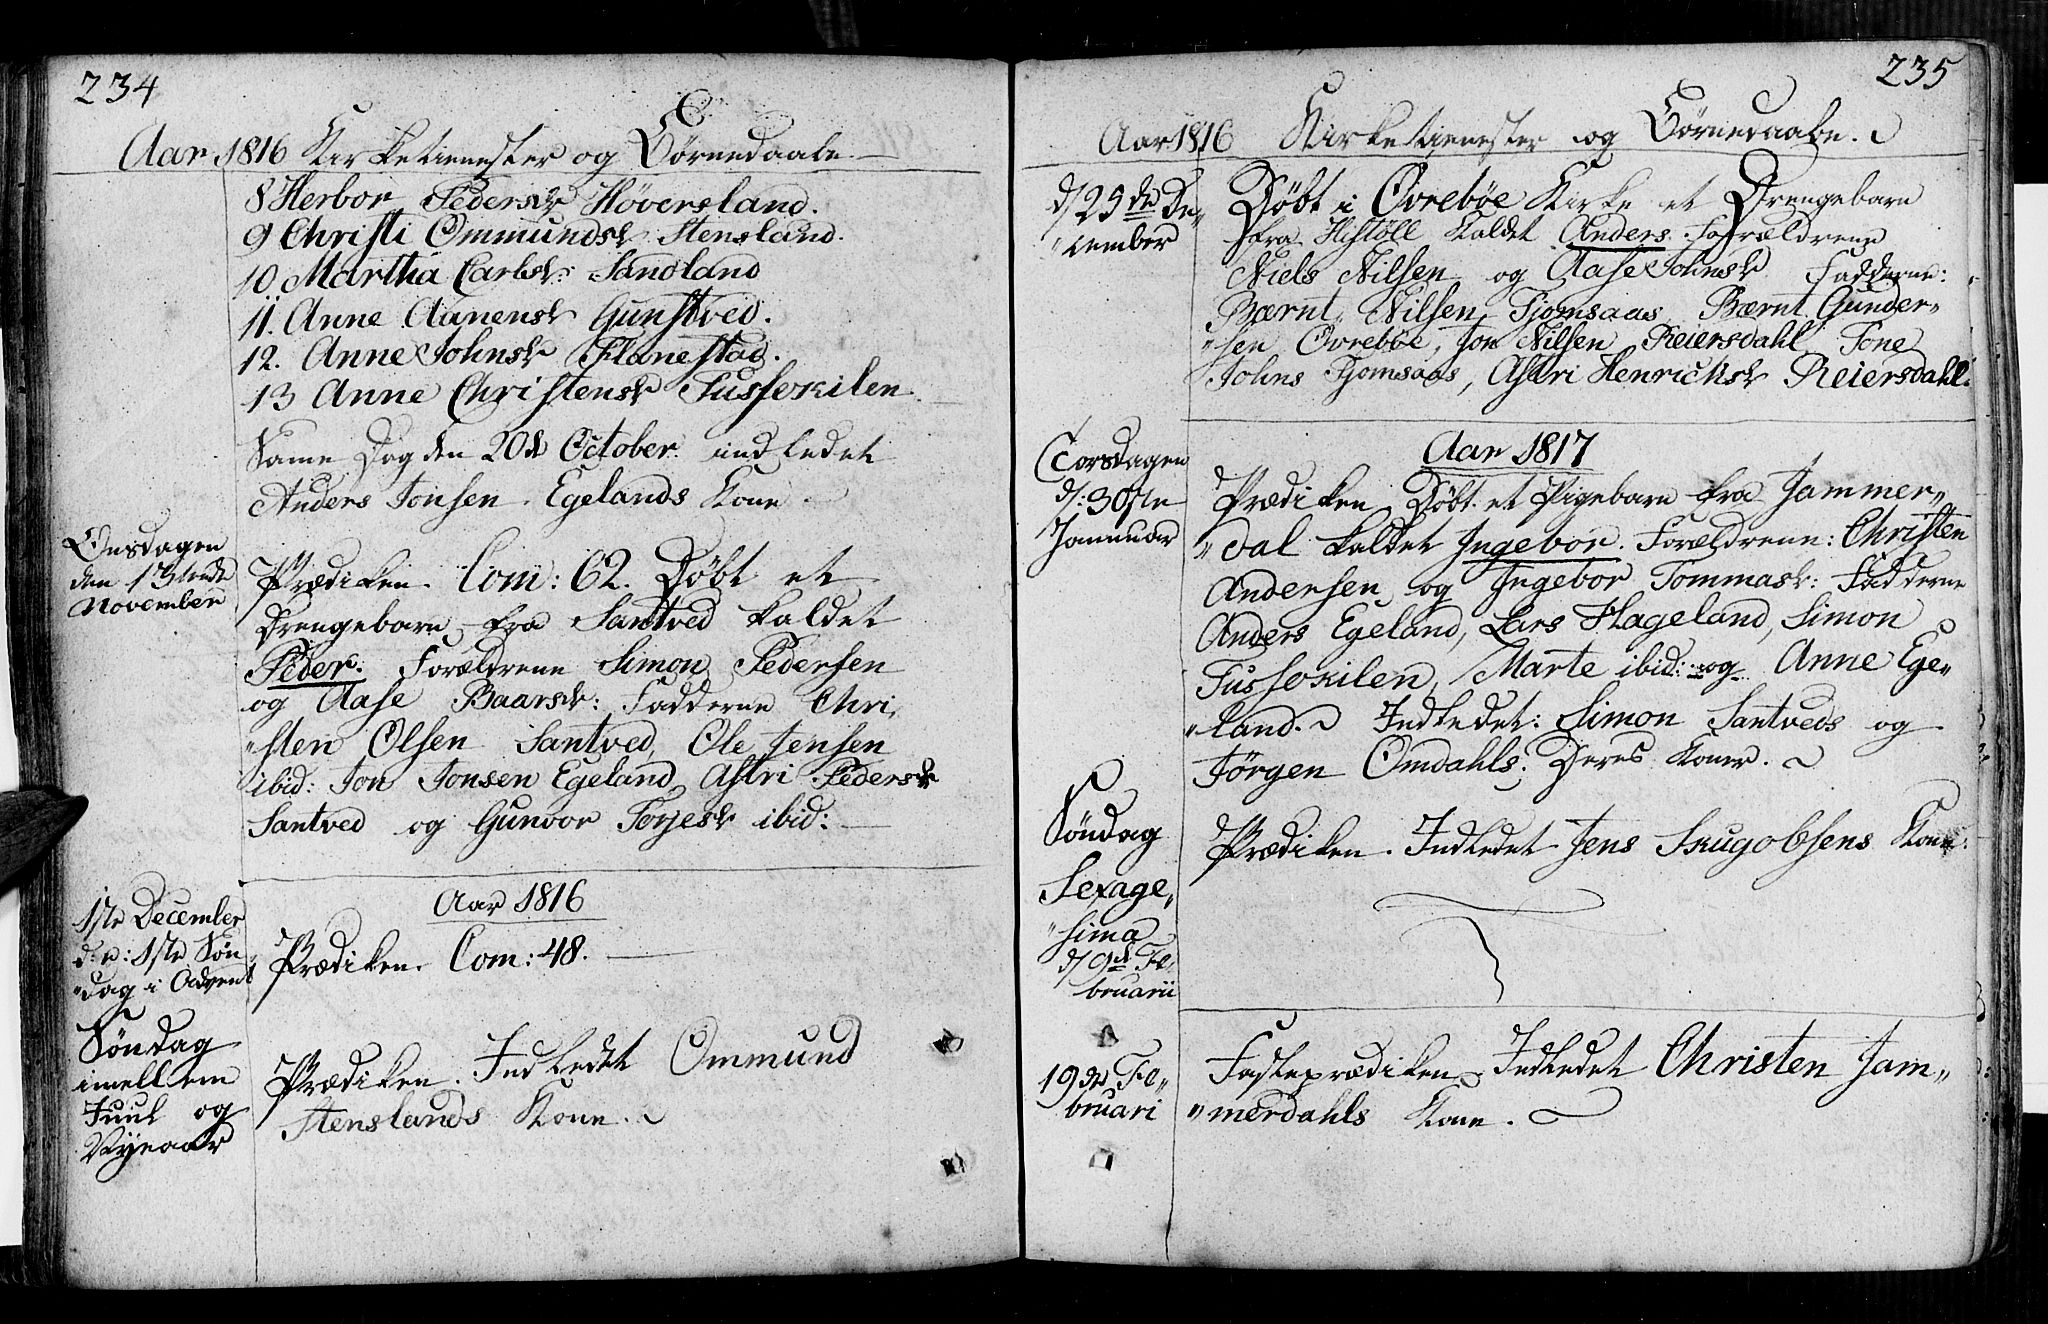 234
Aar 1816 Kirketienester og Börnedaabe.
8 Herbor Pedersdr Höversland.
9 Christi Ommundsdr Stensland.
10 Martha Carlsdr: Sandland
11. Anne Aanensdr Gunstved.
12. Anne Johnsdr Flanestad.
13 Anne Christensdr Tussekilen
Same Dag den 20de October indledet
Anders Jonsen Egelands Kone
Onsdagen
den 13tende
November
Prædiken. Com: 62. Döbt et
Drengebarn fra Santved kaldet
Peder. Forældrene Simon Pedersen
og Aase Baarsdr: Fadderne Chri„
„sten Olsen Santved, Ole Jensen
ibid: Jon Jonsen Egeland, Astri Pedersdr
Santved og Gunvor Torjesdr ibid:
Aar 1816
1ste December
d: e: 1ste Søn„
„dag i Advent
Prædiken. Com: 48.
Søndag
imellem
Juul og
Nyeaar
Prædiken. Indledet Ommund
Stenslands Kone.
235
Aar 1816 Kirketienester og Börnedaabe.
d/ 25de De„
„cember
Döbt i Øvrebøe Kirke et Drengebarn
fra Histöll kaldet Anders. Forældrene
Niels Nilsen og Aase Johnsdr Fadderne:
Bærnt Nilsen Tjomsaas, Bærnt Gunder„
„sen Øvrebøe, Jon Nilsen Reiersdahl Tone
Johns Tjomsaas, Astri Henrichsdr Reiersdahl.
Aar 1817
Torsdagen
d/: 30te
Januar
Prædiken Döbt et Pigebarn fra Jammer„
„dal kaldet Ingebor. Forældrene: Christen
Andersen og Ingebor Tommasdr: Fadderne
Anders Egeland, Lars Hageland, Simon
Tussekilen, Marte ibid: og Anne Ege„
„land. Indledet: Simon Santveds og
Jörgen Omdahls: Deres Koner.
Söndag
Sexage„
„sima
d/ 9de Fe„
bruarii
Prædiken. Indledet Jens Skugobsens Kone:
19de Fe„
bruari
Fasteprædiken. Indledet Christen Jam„
„merdahls Kone.